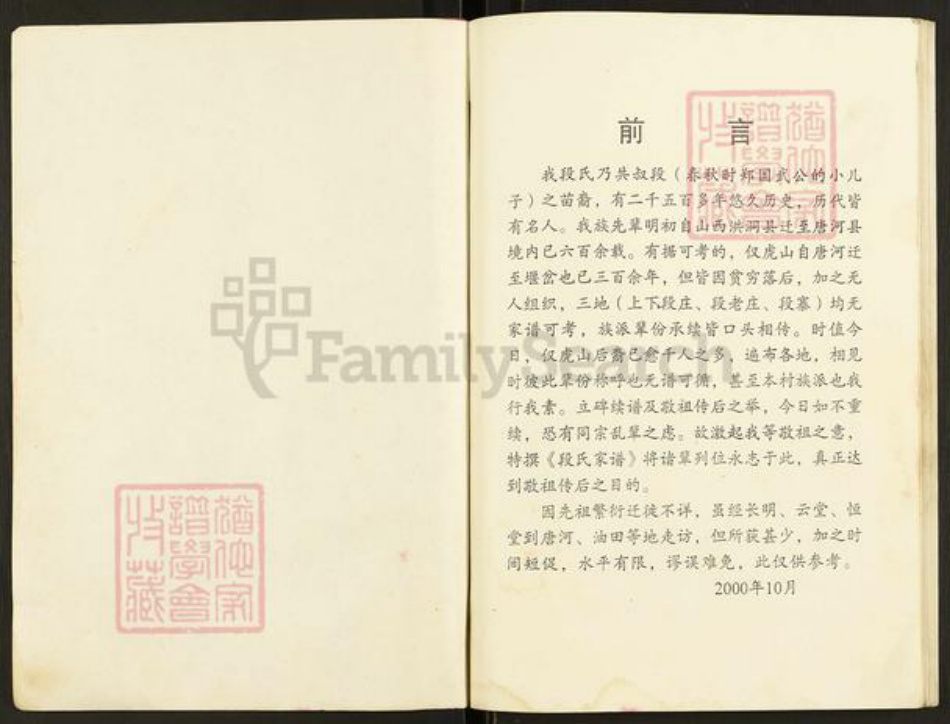 前言
我段氏乃共叔段（春秋时郑国武公的小儿
子）之苗裔，有二千五百多年悠久历史，历代皆
有名人。我族先辈明初自山西洪洞县迁至唐河县
境内已六百余载。有据可考的，仅虎山自唐河迁
至堰岔也已三百余年，但皆因贫穷落后，加之无
人组织，三地（上下段庄、段老庄、段寨）均无
家谱可考，族派辈份承续皆口头相传。时值今
日，仅虎山后裔已愈千人之多，遍布各地，相见
时彼此辈份称呼也无谱可循，甚至本村族派也我
行我素。立碑续谱及敬祖传后之举，今日如不重
续，恐有同宗乱辈之虑。故激起我等敬祖之意，
特撰《段氏家谱》将诸辈列位永志于此，真正达
到敬祖传后之目的。
因先祖繁衍迁徙不详，虽经长明、云堂、恒
堂到唐河、油田等地走访，但所获甚少，加之时
间短促，水平有限，谬误难免，此仅供参考。
2000年10月
FamilySearch
譜學會
收藏